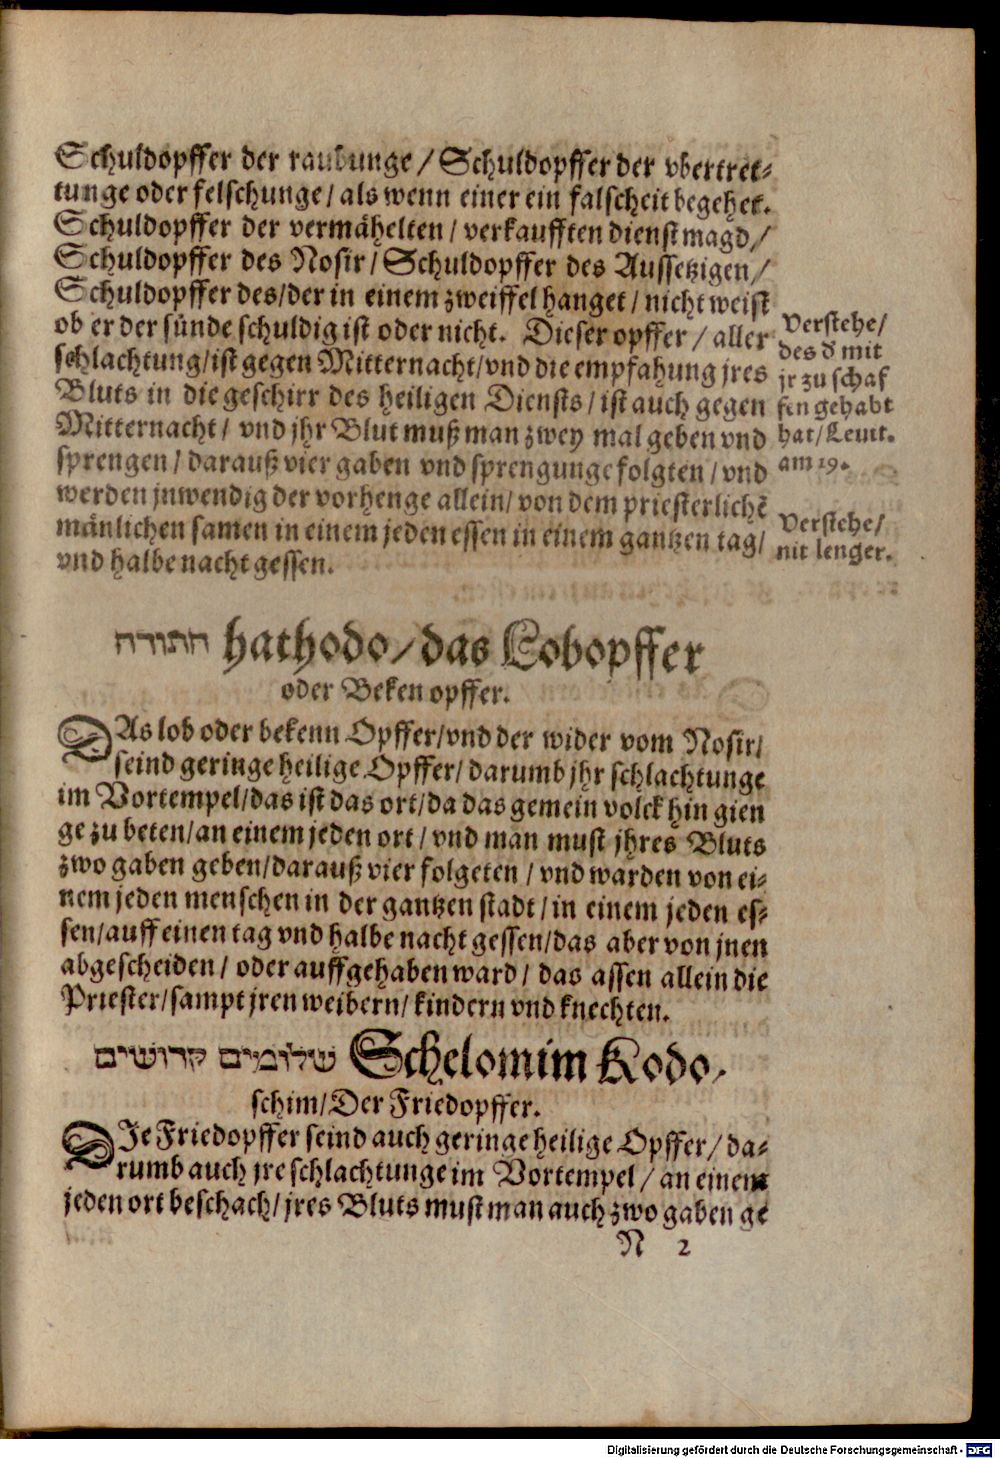 Schuldopffer der raubunge / Schuldopffer der vbertret-
tunge oder felschunge / als wenn einer ein falscheit begehet.
Schuldopffer der vermähelten / verkaufften dienstmagd /
Schuldopffer des Nosir / Schuldopffer des Aussetzigen /
Schuldopffer des / der in einem zweiffel hanget / nicht weist
ob er der sünde schuldig ist oder nicht. Dieser opffer / aller
schlachtung / ist gegen Mitternacht / vnd die empfahung jres
Bluts in die geschirr des heiligen Diensts / ist auch gegen
Mitternacht / vnd jhr Blut muß man zwey mal geben vnd
sprengen / darauß vier gaben vnd sprengunge folgten / vnd
werden jnwendig der vorhenge allein / von dem priesterlichē
mänlichen samen in einem jeden essen in einem gantzen tag /
vnd halbe nacht gessen.
Verstehe /
des d mit
jr zu schaf
fen gehabt
hat / Leuit.
am 19.
Verstehe /
nit lenger.
התודה hathodo / das Lobopffer
oder Beken opffer.
DAs lob oder bekenn Opffer / vnd der wider vom Nosir /
seind geringe heilige Opffer / darumb jhr schlachtunge
im Vortempel / das ist das ort / da das gemein volck hin gien
ge zu beten / an einem jeden ort / vnd man must jhres Bluts
zwo gaben geben / darauß vier folgeten / vnd warden von ei-
nem jeden menschen in der gantzen stadt / in einem jeden es-
sen / auff einen tag vnd halbe nacht gessen / das aber von jnen
abgescheiden / oder auffgehaben ward / das assen allein die
Priester / sampt jren weibern / kindern vnd knechten.
שלומים קדושים Schelomim Kodo-
schim / Der Friedopffer.
DIe Friedopffer seind auch geringe heilige Opffer / da-
rumb auch jre schlachtunge im Vortempel / an einem
jeden ort beschach / jres Bluts must man auch zwo gaben ge
N 2
Digitalisierung gefördert durch die Deutsche Forschungsgemeinschaft - DFG